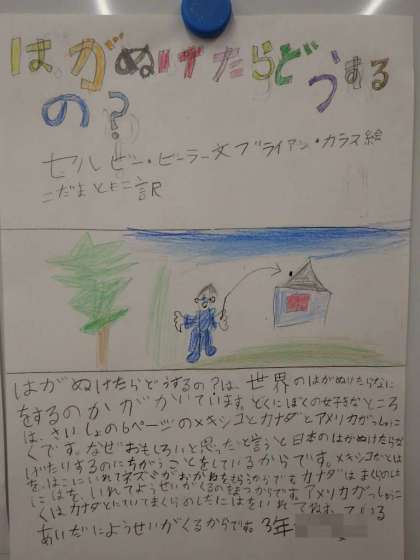 はがぬけたらどうする
の?
セルビー・ビーラー文ブライアン・カラス絵
こだまともこ訳
はがぬけたらどうするの?は、世界のはがぬけたらなに
をするのかがかいています。とくにぼくの女子きなところ
は、さいしょの6ページのメキシコとカナダとアメリカがっしゅうこ
くです。なぜおもしろいと思ったと言うと日本のはがぬけたらな
げたりするのにちがうことをしているからです。メキシコだとは
をはこにいれてネズミがおかねをもらうからです。カナダはまくらのした
にはを、いれてようせいがくるのをまつからです。アメリカがっしゅうこ
くはカナダとにていてまくらのしたにはをいれてねむっている
あいだにようせいがくるからです。3年